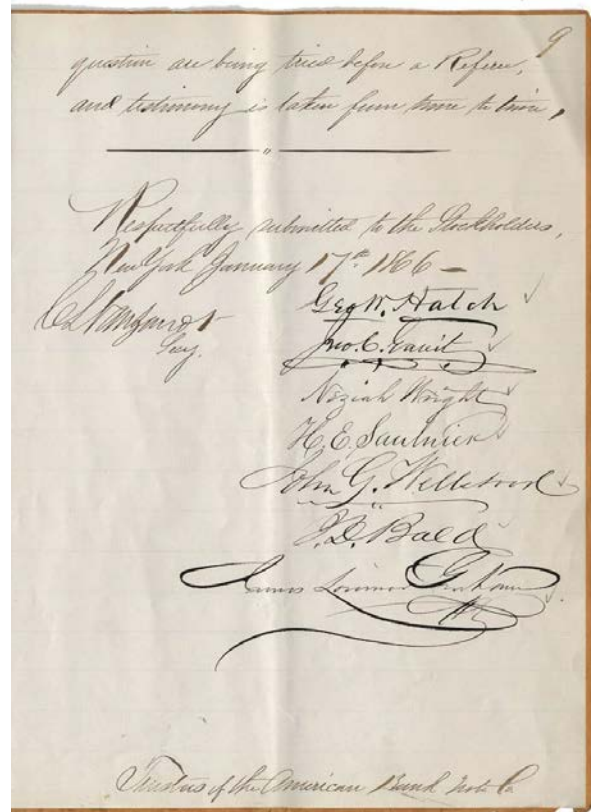 9
question are being tried before a Referee,
and testimony is taken from time to time,
Respectfully submitted to the Stockholders,
New York January 17th 1866 –
Geo W. Hatch
Secy.
Jno. C. Gavit
Neziah Wright
H. E. Saulnier
John G. Wellstood
J. D. Bald
James Lorimer Graham
Trustees of the American Bank Note Co